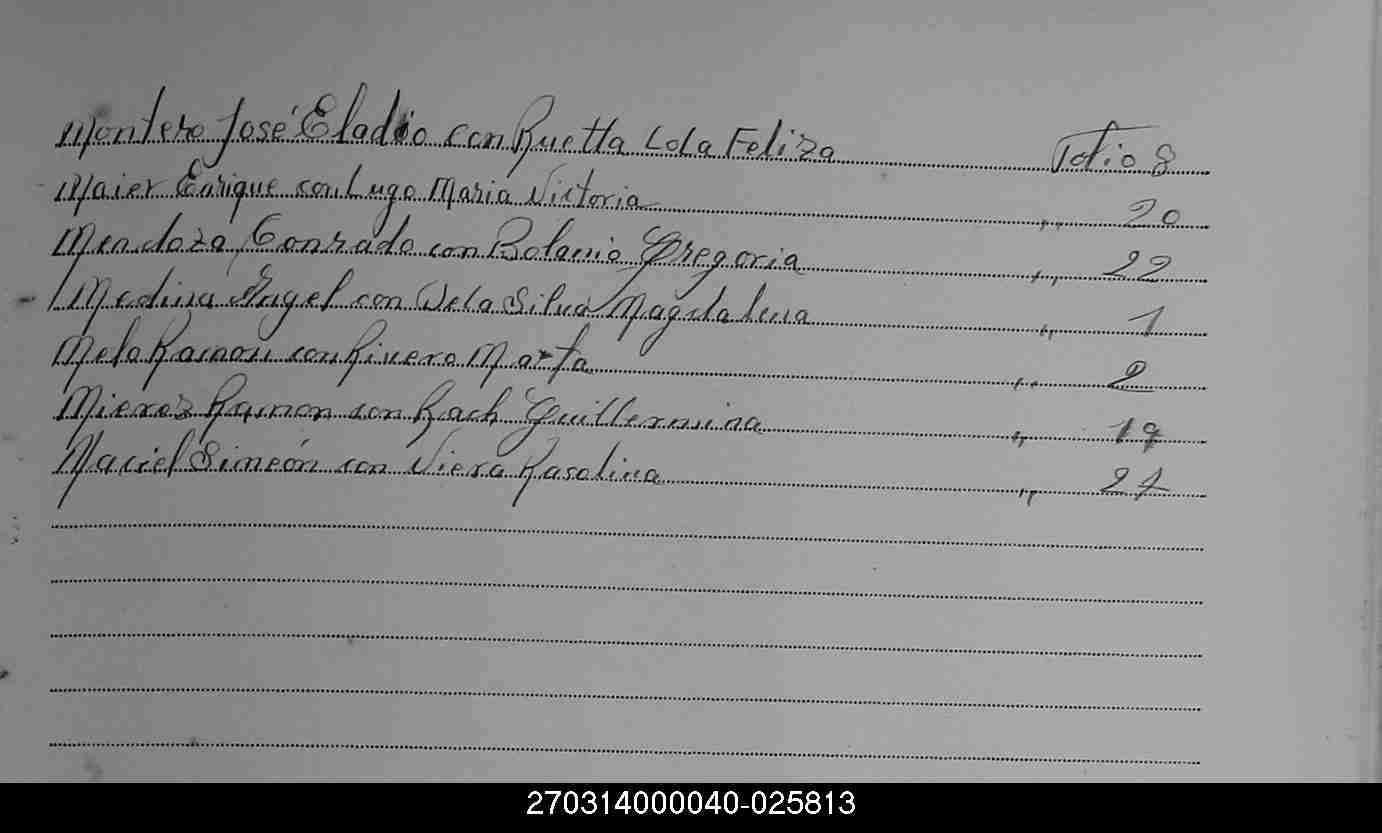 Montero José Eladio con Ruetta Lola Feliza Folio 8
Maier Enrique con Lugo Maria Victoria " 20
Mendoza Conrado con Bolanio Gregoria " 22
Medina Angel con De la Silva Magdalena " 1
Melo Ramon con Rivero Marta " 2
Mierez Ramon con Rach Guillermina " 19
Maciel Simeón con Viera Rasolina " 27
270314000040-025813